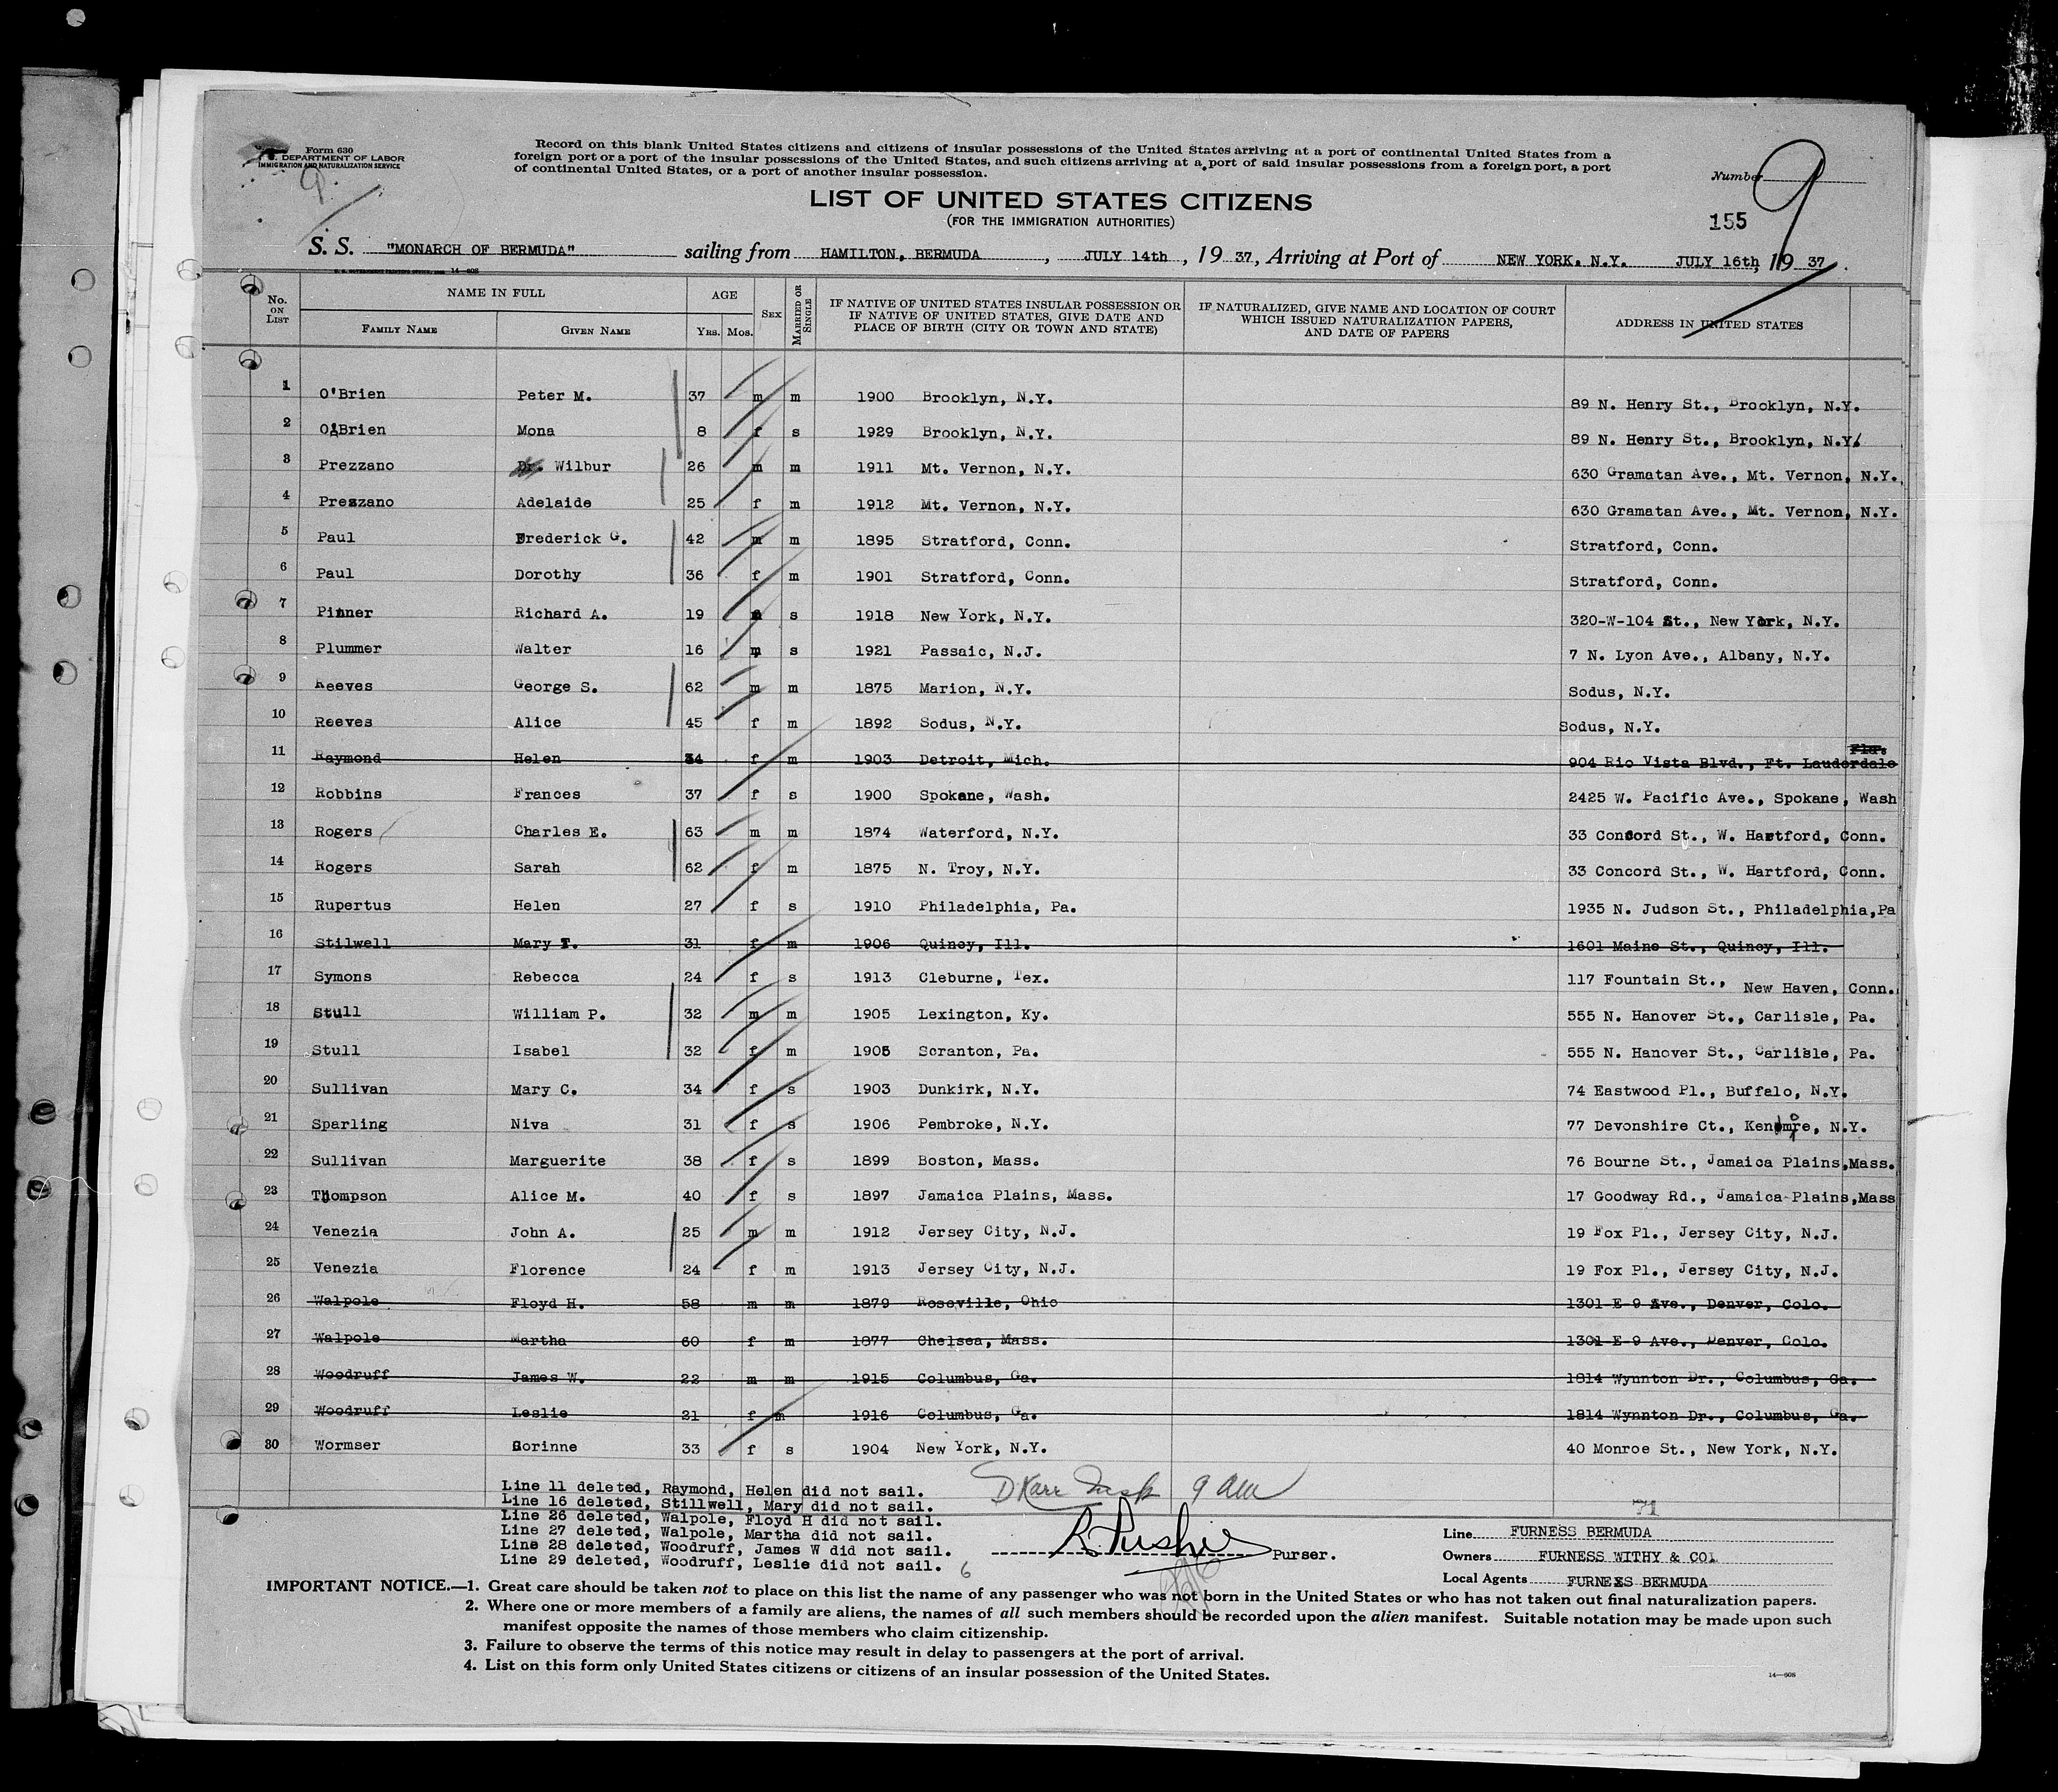 Form 630
U. S. DEPARTMENT OF LABOR
IMMIGRATION AND NATURALIZATION SERVICE
9.
Record on this blank United States citizens and citizens of insular possessions of the United States arriving at a port of continental United States from a
foreign port or a port of the insular possessions of the United States, and such citizens arriving at a port of said insular possessions from a foreign port, a port
of continental United States, or a port of another insular possession.
Number 9
LIST OF UNITED STATES CITIZENS
(FOR THE IMMIGRATION AUTHORITIES)
155
S. S. "MONARCH OF BERMUDA" sailing from HAMILTON, BERMUDA, JULY 14th, 19 37, Arriving at Port of NEW YORK, N.Y. JULY 16th, 19 37.
No. ON LIST NAME IN FULL AGE SEX MARRIED OR SINGLE IF NATIVE OF UNITED STATES INSULAR POSSESSION OR IF NATIVE OF UNITED STATES, GIVE DATE AND PLACE OF BIRTH (CITY OR TOWN AND STATE) IF NATURALIZED, GIVE NAME AND LOCATION OF COURT WHICH ISSUED NATURALIZATION PAPERS, AND DATE OF PAPERS ADDRESS IN UNITED STATES
FAMILY NAME GIVEN NAME YRS. MOS.
1 O'Brien Peter M. 37 m m 1900 Brooklyn, N.Y. 89 N. Henry St., Brooklyn, N.Y.
2 O'Brien Mona 8 f s 1929 Brooklyn, N.Y. 89 N. Henry St., Brooklyn, N.Y.
3 Prezzano Dr. Wilbur 26 m m 1911 Mt. Vernon, N.Y. 630 Gramatan Ave., Mt. Vernon, N.Y.
4 Prezzano Adelaide 25 f m 1912 Mt. Vernon, N.Y. 630 Gramatan Ave., Mt. Vernon, N.Y.
5 Paul Frederick G. 42 m m 1895 Stratford, Conn. Stratford, Conn.
6 Paul Dorothy 36 f m 1901 Stratford, Conn. Stratford, Conn.
7 Pinner Richard A. 19 m s 1918 New York, N.Y. 320-W-104 St., New York, N.Y.
8 Plummer Walter 16 m s 1921 Passaic, N.J. 7 N. Lyon Ave., Albany, N.Y.
9 Reeves George S. 62 m m 1875 Marion, N.Y. Sodus, N.Y.
10 Reeves Alice 45 f m 1892 Sodus, N.Y. Sodus, N.Y.
11 Raymond Helen 34 f m 1903 Detroit, Mich. 904 Rio Vista Blvd., Ft. Lauderdale Fla.
12 Robbins Frances 37 f s 1900 Spokane, Wash. 2425 W. Pacific Ave., Spokane, Wash
13 Rogers Charles E. 63 m m 1874 Waterford, N.Y. 33 Concord St., W. Hartford, Conn.
14 Rogers Sarah 62 f m 1875 N. Troy, N.Y. 33 Concord St., W. Hartford, Conn.
15 Rupertus Helen 27 f s 1910 Philadelphia, Pa. 1935 N. Judson St., Philadelphia,Pa
16 Stilwell Mary T. 31 f m 1906 Quincy, Ill. 1601 Maine St., Quincy, Ill.
17 Symons Rebecca 24 f s 1913 Cleburne, Tex. 117 Fountain St., New Haven, Conn.
18 Stull William P. 32 m m 1905 Lexington, Ky. 555 N. Hanover St., Carlisle, Pa.
19 Stull Isabel 32 f m 1905 Scranton, Pa. 555 N. Hanover St., Carlisle, Pa.
20 Sullivan Mary C. 34 f s 1903 Dunkirk, N.Y. 74 Eastwood Pl., Buffalo, N.Y.
21 Sparling Niva 31 f s 1906 Pembroke, N.Y. 77 Devonshire Ct., Kenmore, N.Y.
22 Sullivan Marguerite 38 f s 1899 Boston, Mass. 76 Bourne St., Jamaica Plains,Mass.
23 Thompson Alice M. 40 f s 1897 Jamaica Plains, Mass. 17 Goodway Rd., Jamaica Plains,Mass
24 Venezia John A. 25 m m 1912 Jersey City, N.J. 19 Fox Pl., Jersey City, N.J.
25 Venezia Florence 24 f m 1913 Jersey City, N.J. 19 Fox Pl., Jersey City, N.J.
26 Walpole Floyd H. 58 m m 1879 Roseville, Ohio 1301 E 9 Ave., Denver, Colo.
27 Walpole Martha 60 f m 1877 Chelsea, Mass. 1301 E 9 Ave., Denver, Colo.
28 Woodruff James W. 22 m m 1915 Columbus, Ga. 1814 Wynnton Dr., Columbus, Ga.
29 Woodruff Leslie 21 f m 1916 Columbus, Ga. 1814 Wynnton Dr., Columbus, Ga.
30 Wormser Corinne 33 f s 1904 New York, N.Y. 40 Monroe St., New York, N.Y.
Line 11 deleted, Raymond, Helen did not sail.
Line 16 deleted, Stillwell, Mary did not sail.
Line 26 deleted, Walpole, Floyd H did not sail.
Line 27 deleted, Walpole, Martha did not sail.
Line 28 deleted, Woodruff, James W did not sail.
Line 29 deleted, Woodruff, Leslie did not sail. 6
D Karr Insp 9 AM
Purser.
71
Line FURNESS BERMUDA
Owners FURNESS WITHY & CO.
Local Agents FURNESS BERMUDA
IMPORTANT NOTICE.—1. Great care should be taken not to place on this list the name of any passenger who was not born in the United States or who has not taken out final naturalization papers.
2. Where one or more members of a family are aliens, the names of all such members should be recorded upon the alien manifest. Suitable notation may be made upon such
manifest opposite the names of those members who claim citizenship.
3. Failure to observe the terms of this notice may result in delay to passengers at the port of arrival.
4. List on this form only United States citizens or citizens of an insular possession of the United States.
14—608